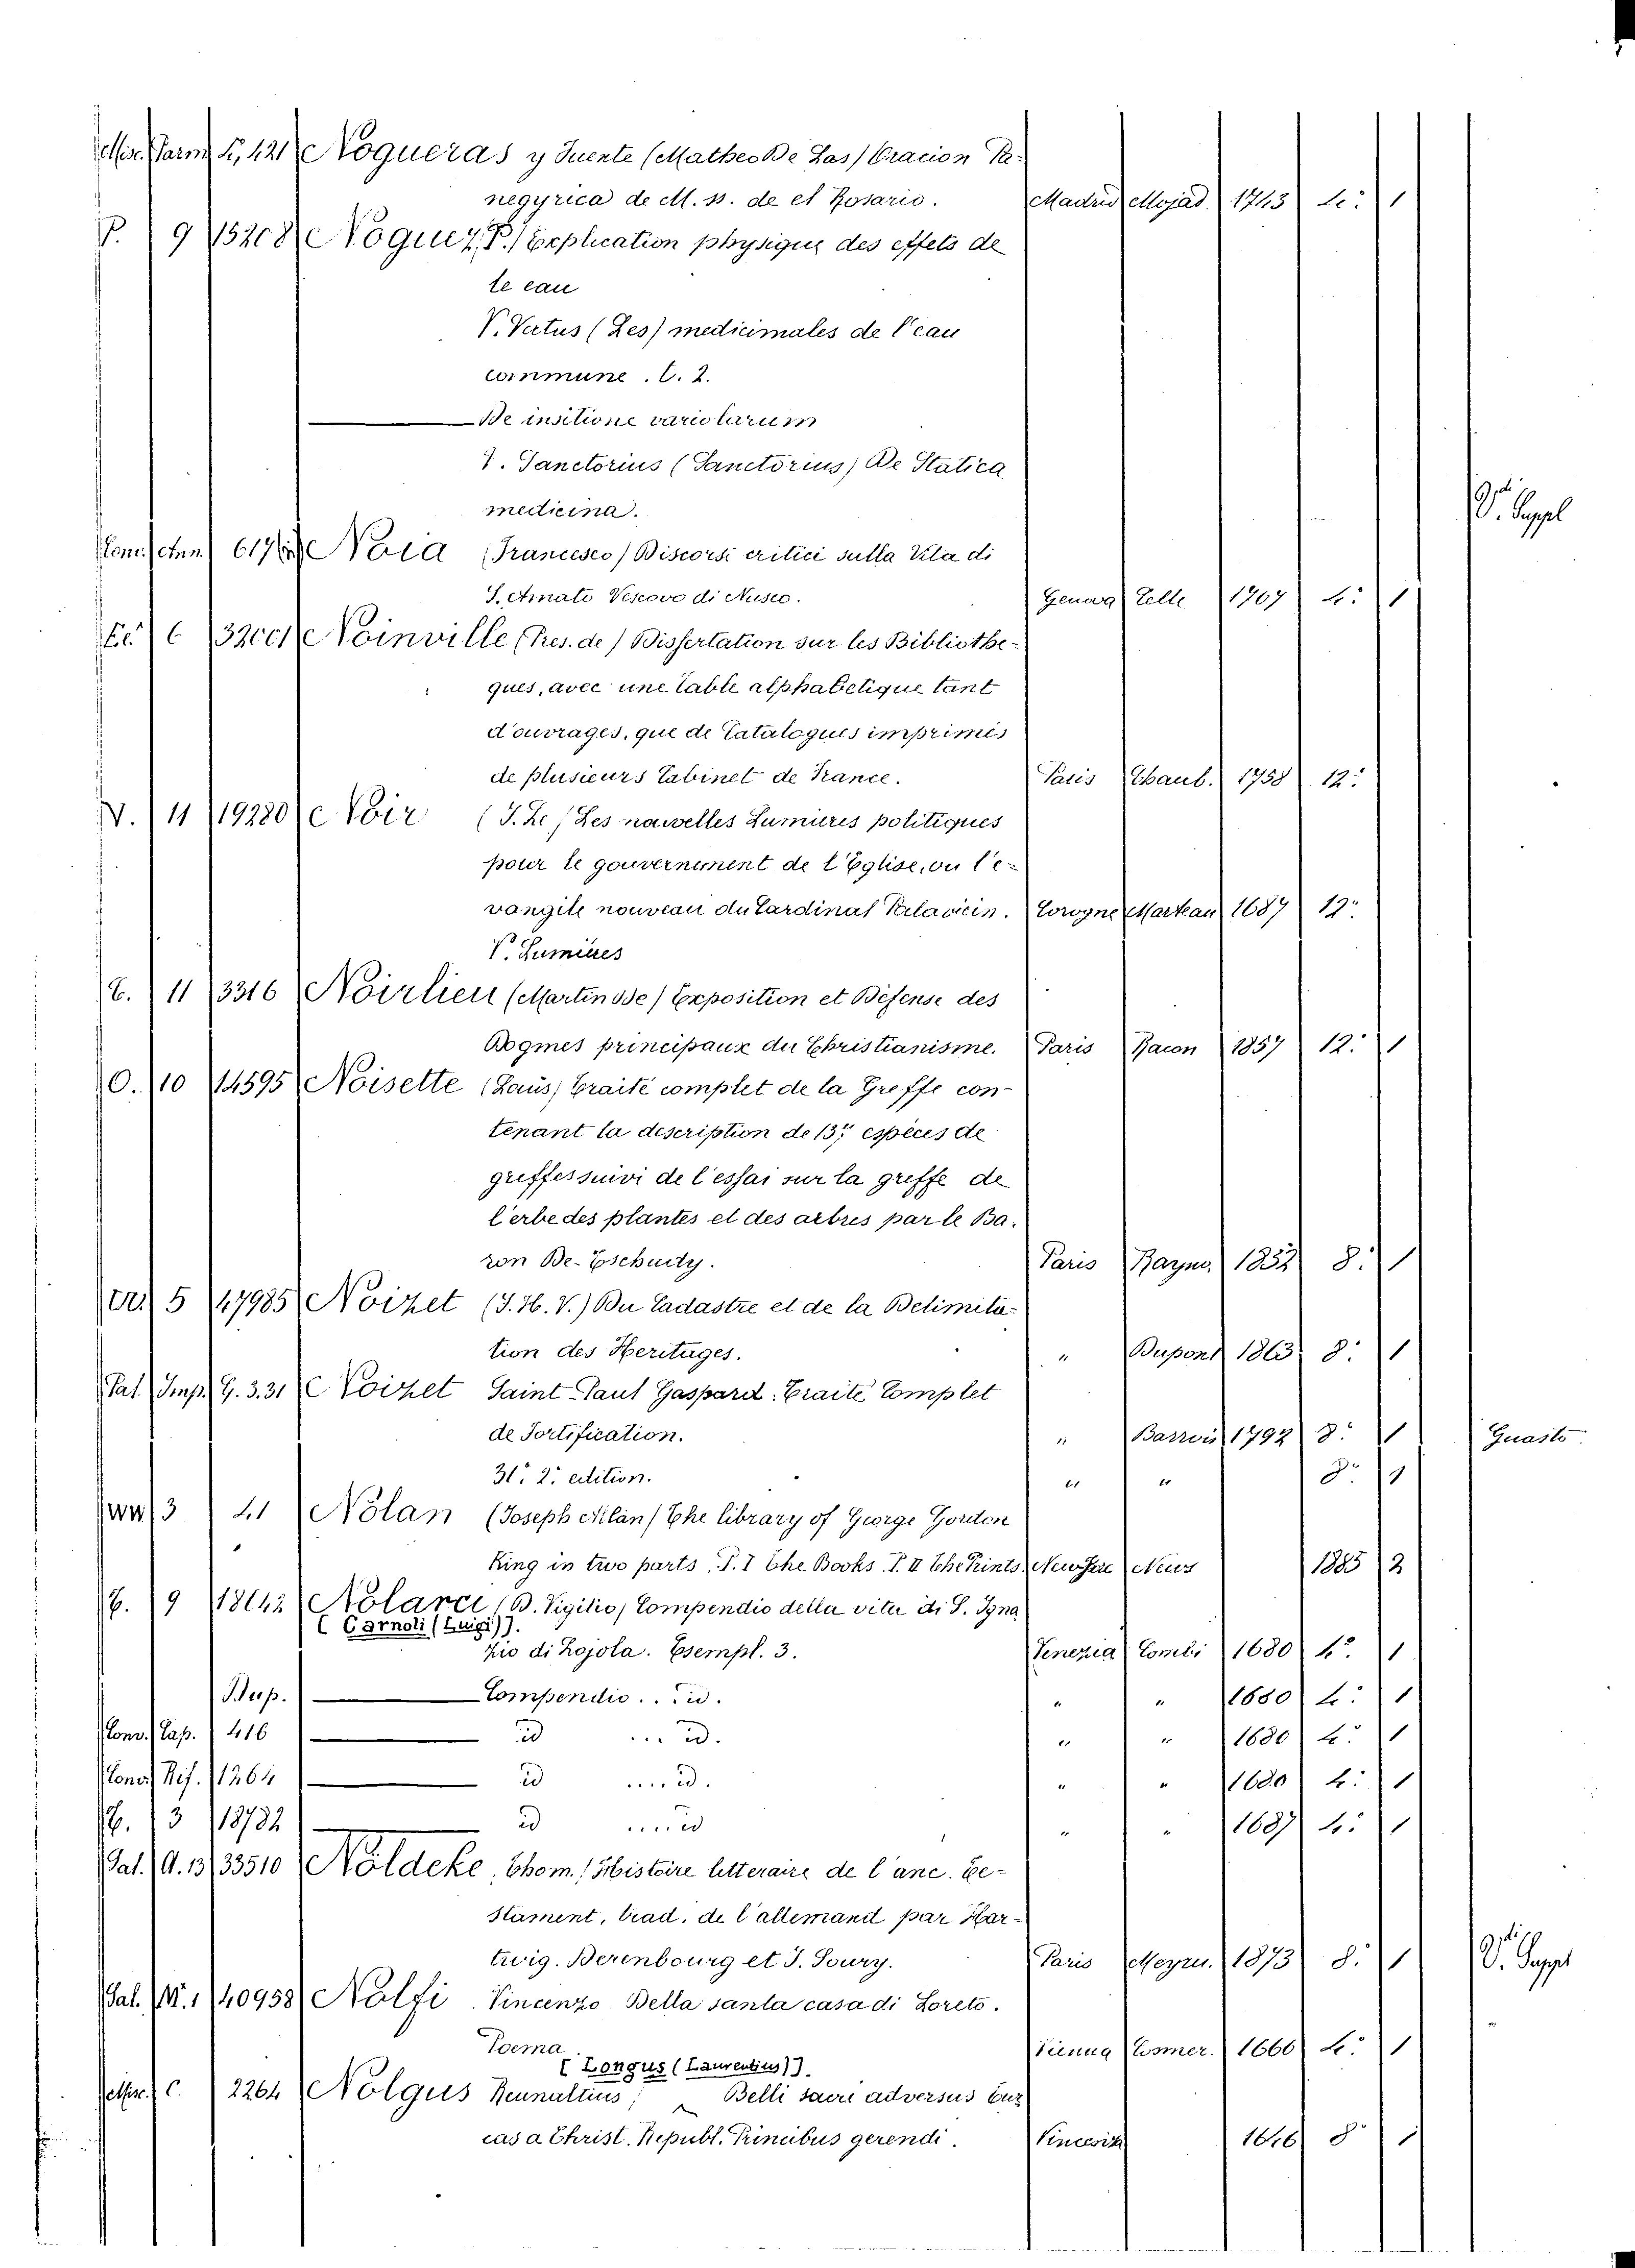 Misc. Parm. 4, 421 Nogueras y Fuente (Matheo De Las) Oracion Pa-
negyrica de M. SS. de el Rosario. Madrid Mojad. 1743 4: 1
P. 9 15208 Noguez, P.) Explication physique des effets de
le eau
V. Vertus (Les) medicimales de l'eau
commune. C. 2.
De insitione variolarum
V. Sanctorius (Sanctorius) De Statica
medicina.
V. Suppl
Noia (Francesco) Discorsi critici sulla Vita di
S. Amato Vescovo di Nusco. Genova Celle 1707 4: 1
6 Noinville (Pres. de) Dissertation sur les Bibliothe-
ques, avec une table alphabetique tant
d'ouvrages, que de Catalogues imprimés
de plusieurs Cabinet de France. Paris Chaub. 1758 12:
V. 11 19280 Noir (J. Le) Les nouvelles Lumieres politiques
pour le gouvernement de l'Eglise, ou l'e-
vangile nouveau du Cardinal Palavicin. Cologne Marteau 1687 12:
V. Lumieres
E. 11 3316 Noirlieu (Martin De) Exposition et Défense des
Dogmes principaux du Christianisme. Paris Racon 1857 12: 1
O. 10 14595 Noisette (Laus) Traité complet de la Greffe con-
tenant la description de 137 espèces de
greffes suivi de l'essai sur la greffe de
l'erbe des plantes et des arbres par le Ba-
ron De-Eschudy. Paris Rayno. 1852 8: 1
5 47985 Noizet (J. H. V.) Du Cadastre et de la Delimita-
tion des Heritages. " Dupont 1863 8: 1
Pal. Imp. G. 3.31 Noizet Saint-Paul Gaspard. Traité Complet
de Fortification. " Barrois 1792 8: 1 Guasto
31: 2: edition. " " 8: 1
3 41 Nolan (Joseph Alan) The library of George Gordon
King in two parts. P. I The Books. P. II The Prints. News 1885 2
E. 9 18642 Nolarci (D. Vigilio) Compendio della vita di S. Igna
[Carnoli (Luigi)].
zio di Lojola. Esempl. 3. Venezia Combi 1680 4: 1
Dup. Compendio... id. " " 1680 4: 1
Conv. Cap. 416 id ... id. " " 1680 4: 1
Conv. Rif. 1264 id .... id. " " 1680 4: 1
E. 3 18732 id .... id " " 1687 4: 1
Pal. A. 13 33510 Nöldeke, Thom.) Histoire litteraire de l'anc. Te-
stament, trad. de l'allemand par Har-
twig. Derenbourg et J. Soury. Paris Meyru. 1873 8: 1 V. Suppl
Pal. M. 1 40958 Nolfi Vincenzo Della santa casa di Loreto.
Poema Vienna Cosmer. 1666 4: 1
[Longus (Laurentius)].
Misc. C. 2264 Nolgus Reunaltius, Belli sacri adversus Tur
cas a Christ. Republ. Principibus gerendi. 8 1